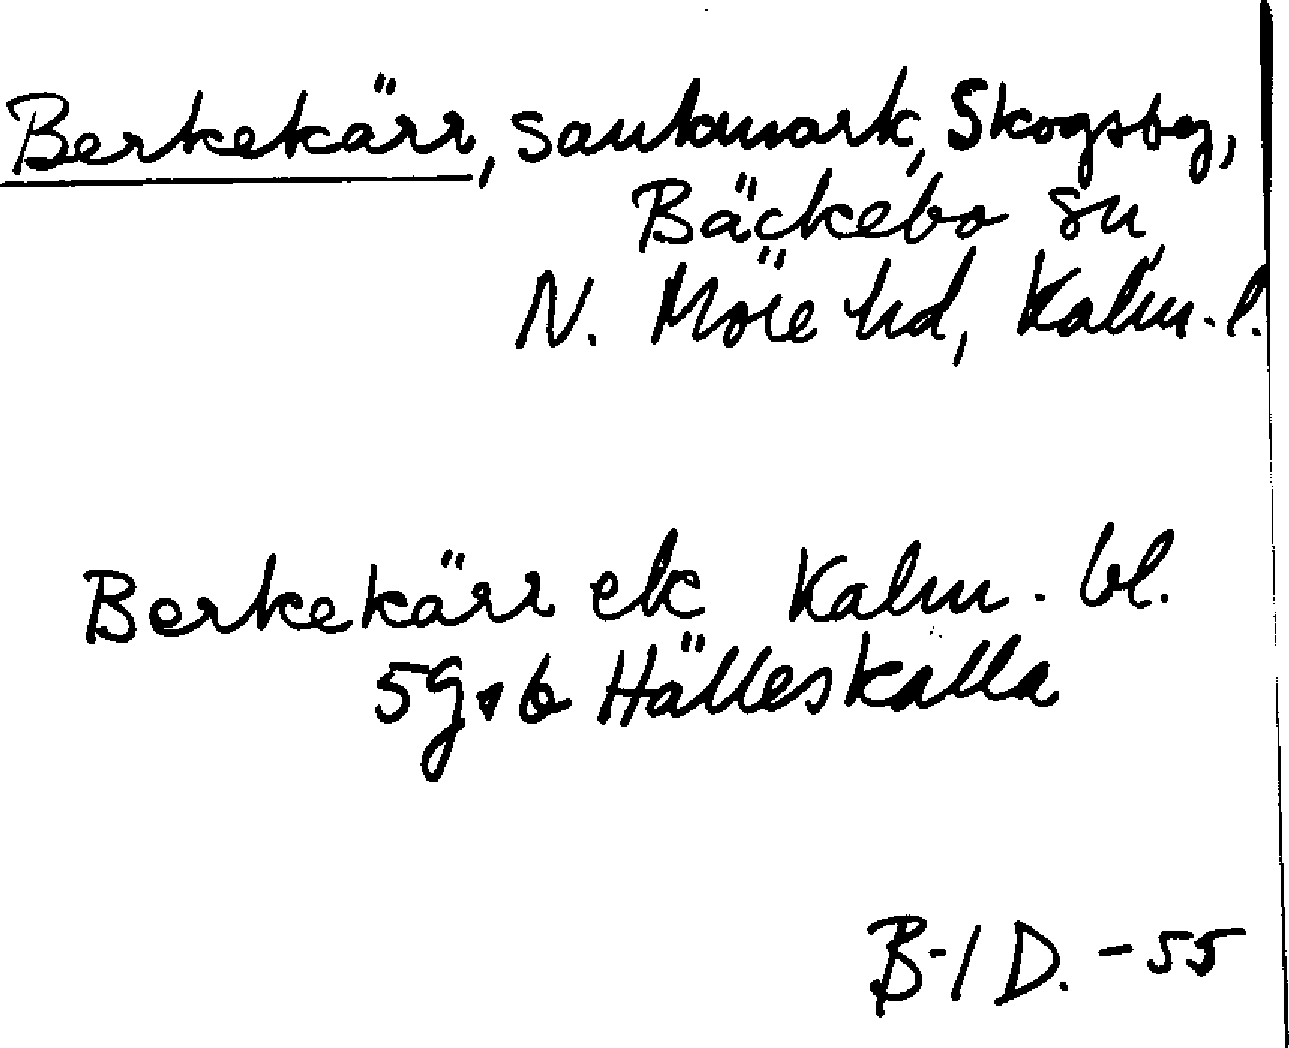 Berkekärr, sankmark, Skogsby,
Bäckebo sn
N. Möre hd, Kalm. l.
Berkekärr ek Kalm. bl.
5G Hälleskälla
B-I D. -55